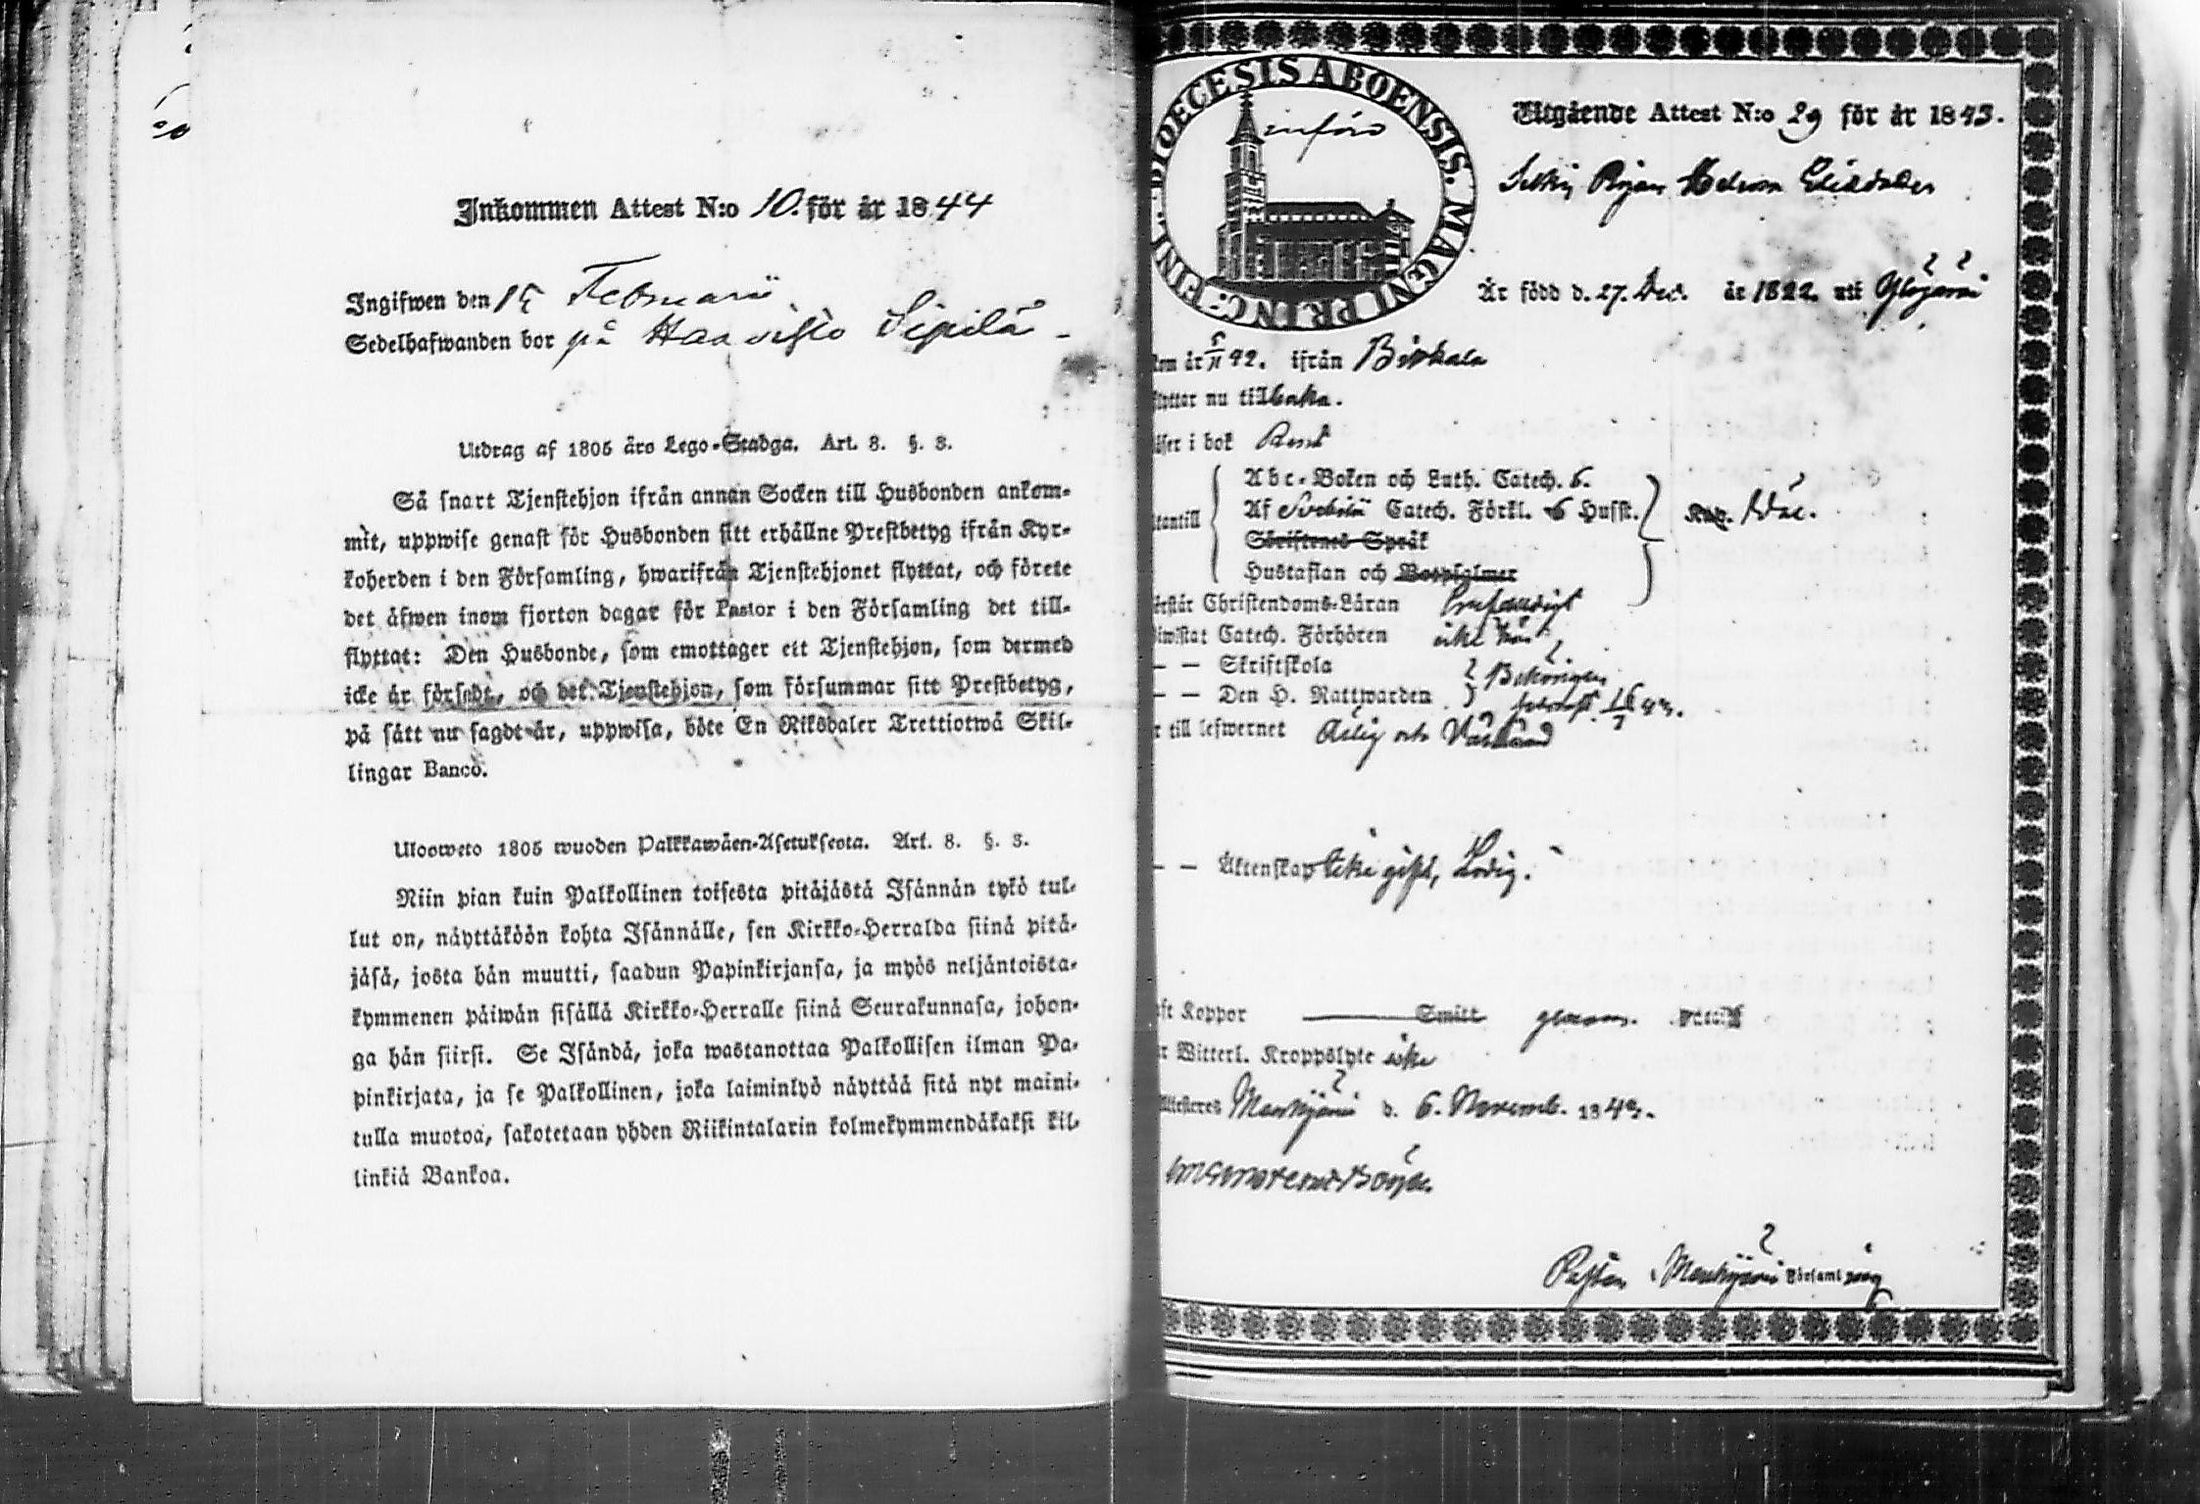 Inkommen Attest N:o 10. för år 1844
Ingifwen den 15 Februarii
Sedelhafwanden bor på Haavisto Sipilä
Utdrag af 1805 års Lego-Stadga. Art. 8. §. 3.
Så snart Tjenstehjon ifrån annan Socken till Husbonden ankom-
mit, uppwise genast för Husbonden sitt erhållne Prestbetyg ifrån Kyr-
koherden i den Församling, hwarifrån Tjenstehjonet flyttat, och förete
det äfwen inom fjorton dagar för Pastor i den Församling det till-
flyttat: Den Husbonde, som emottager ett Tjenstehjon, som dermed
icke är försedt, och det Tjenstehjon, som försummar sitt Prestbetyg,
på sätt nu sagdt är, uppwisa, böte En Riksdaler Trettiotwå Skil-
lingar Banco.
Uloosweto 1805 wuoden Palkkawäen-Asetuksesta. Art. 8. §. 3.
Niin pian kuin Palkollinen toisesta pitäjästä Isännän tykö tul-
lut on, näyttäköön kohta Isännälle, sen Kirkko-Herralda siinä pitä-
jäsä, josta hän muutti, saadun Papinkirjansa, ja myös neljäntoista-
kymmenen päiwän sisällä Kirkko-Herralle siinä Seurakunnasa, johon-
ga hän siirsi. Se Isändä, joka wastanottaa Palkollisen ilman Pa-
pinkirjata, ja se Palkollinen, joka laiminlyö näyttää sitä nyt maini-
tulla muotoa, sakotetaan yhden Riikintalarin kolmekymmendäkaksi kil-
linkiä Bankoa.
DIOECESIS ABOENSIS. MAGNI PRINC. FINL.
införd
Utgående Attest N:o 29 för år 1843.
Pigan Helena
Är född d. 27. Dec. år 1822. uti Ylöjärvi
kom år 42. ifrån Birkala
flyttar nu tillbaka.
läser i bok Rent
Abc-Boken och Luth. Catech. 6.
utantill Af Catech. Förkl. 6 Husst.
Skriftenes Språk
Hustaflan och Botpsalmer
förstår Christendoms-Läran
biwistat Catech. Förhören icke här
— — Skriftskola
— — Den H. Nattwarden
Behörigen
är till lefwernet Ärlig och
— — Äktenskap Icke gift, Ledig.
haft Koppor Smitt genom
är Witterl. Kroppslyte icke
Attesteras Mouhijärvi d. 6. Novemb. 1843.
Pastor i Mouhijärvi Församling